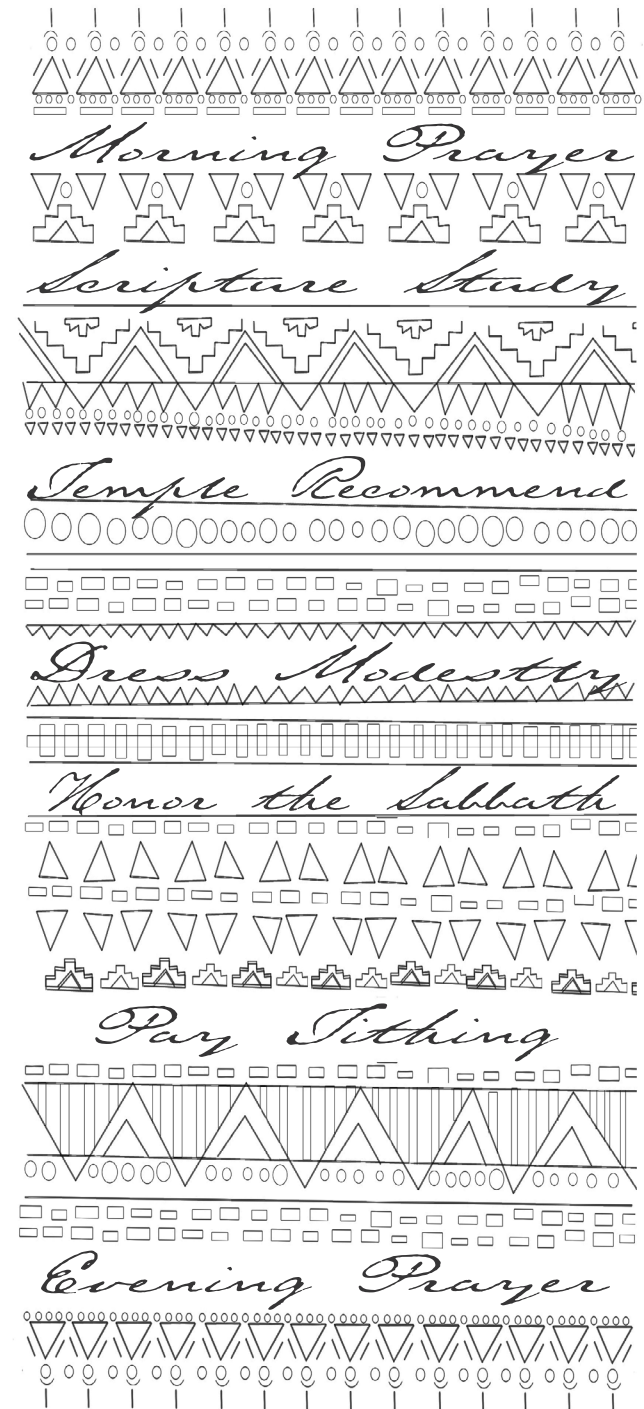 Morning Prayer
Scripture Study
Temple Recommend
Dress Modestly
Honor the Sabbath
Pay Tithing
Evening Prayer